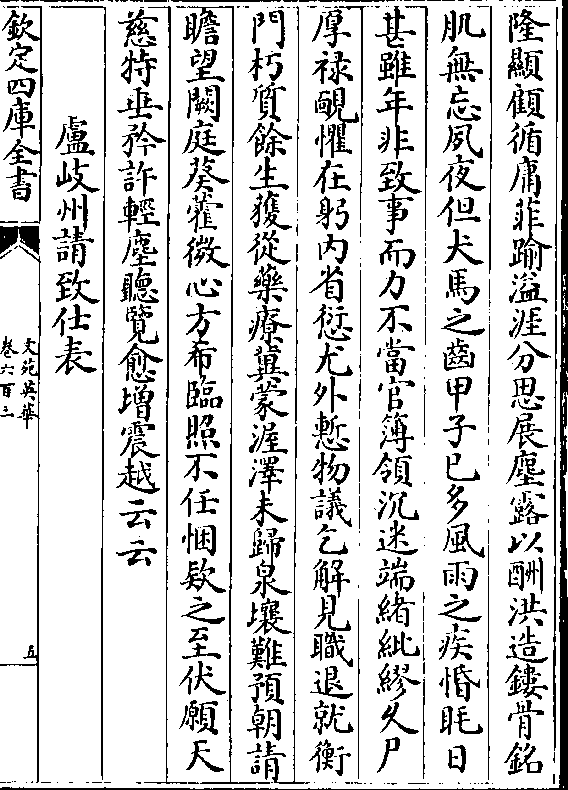 隆顯顧循庸菲踰溢涯分思展塵露以酬洪造鏤骨銘
肌無忘夙夜但犬馬之齒甲子已多風雨之疾惛眊日
甚雖年非致事而力不當官簿領沉迷端緒紕繆久尸
厚禄覥懼在躬内省愆尤外慙物議乞解見職退就衡
門朽質餘生獲從藥療冀蒙渥澤未歸泉壤難預朝請
瞻望闕庭葵藿微心方希臨照不任悃欵之至伏願天
慈特垂矜許輕塵聽覽愈增震越云云
盧岐州請致仕表
欽定四庫全書
文苑英華
卷六百三
五